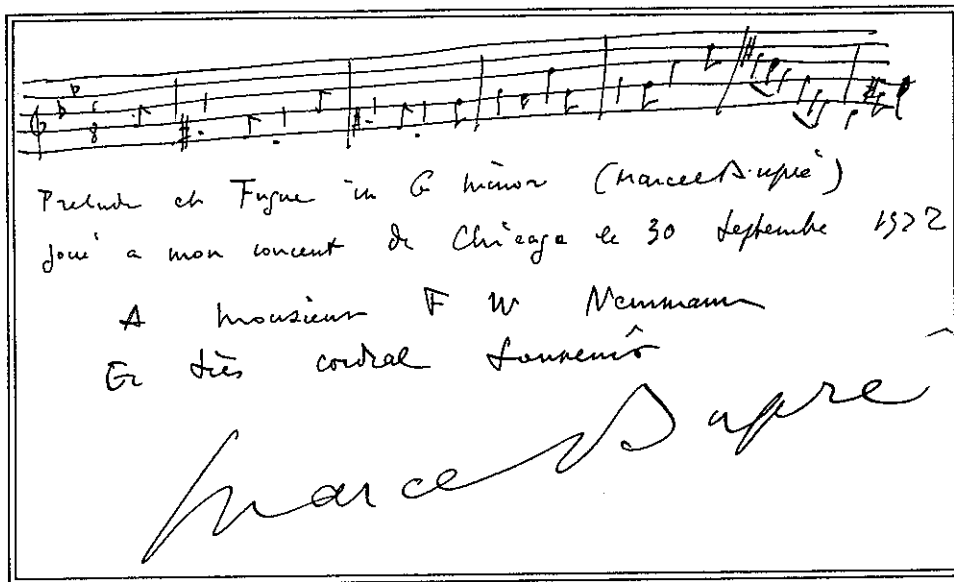 Prelude et Fugue in G minor (Marcel Dupré)
joué a mon concert de Chicago le 30 Septembre 1922
A monsieur F W Neumann
En très cordial Souvenir
Marcel Dupré